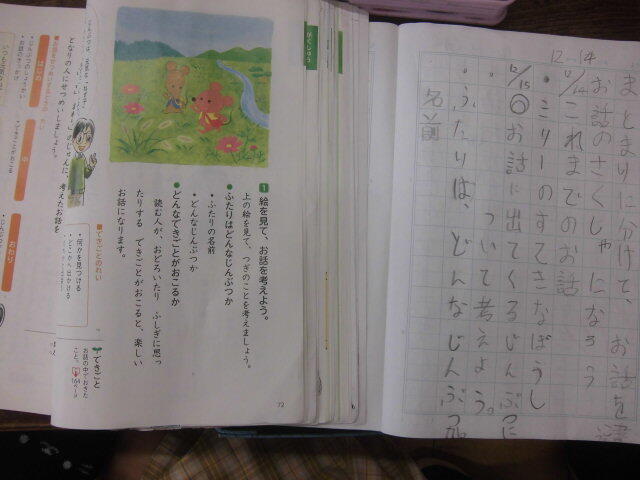 12-14
まとまりに分けて、お話を
お話のさくしゃになろう
12/14 これまでのお話
・ミリーのすてきなぼうし
12/15
◎お話に出てくるじんぶつに
ついて考えよう。
・ふたりは、どんなじんぶつか
・名前
がくしゅう
1 絵を見て、お話を考えよう。
上の絵を見て、つぎのことを考えましょう。
●ふたりはどんなじんぶつか
・ふたりの名前
・どんなじんぶつか
●どんなできごとがおこるか
読む人が、おどろいたり ふしぎに思っ
たりする できごとがおこると、楽しい
お話になります。
できごと
お話の中でおきた
こと。
164ページ
72
■できごとのれい
・何かを見つける
・どこかへ出かける
となりの人にせつめいしましょう。
じゅんに、考えたお話を
はじめ
中
おわり